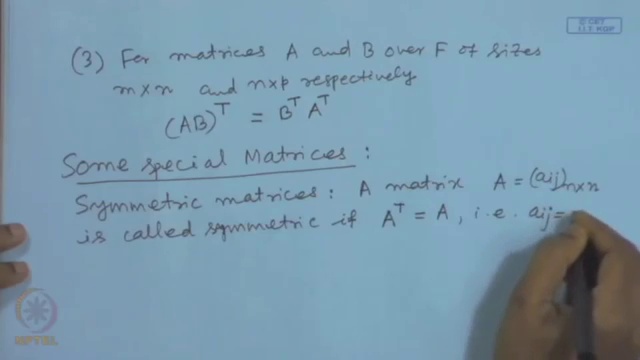 © CET
I.I.T. KGP
(3) For matrices A and B over F of sizes
m×n and n×p respectively
(AB)^T = B^T A^T
Some special Matrices :
Symmetric matrices : A matrix A = (aij)n×n
is called symmetric if A^T = A, i.e. aij=
NPTEL